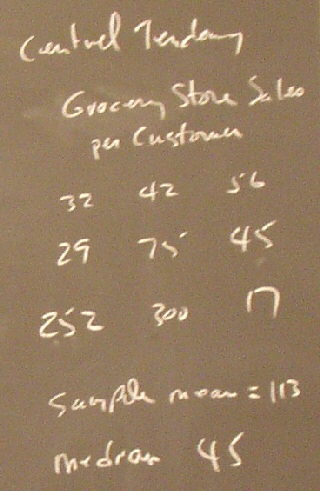 Central Tendency
Grocery Store Sales
per Customer
32 42 56
29 75 45
252 300 17
Sample mean = 113
median 45